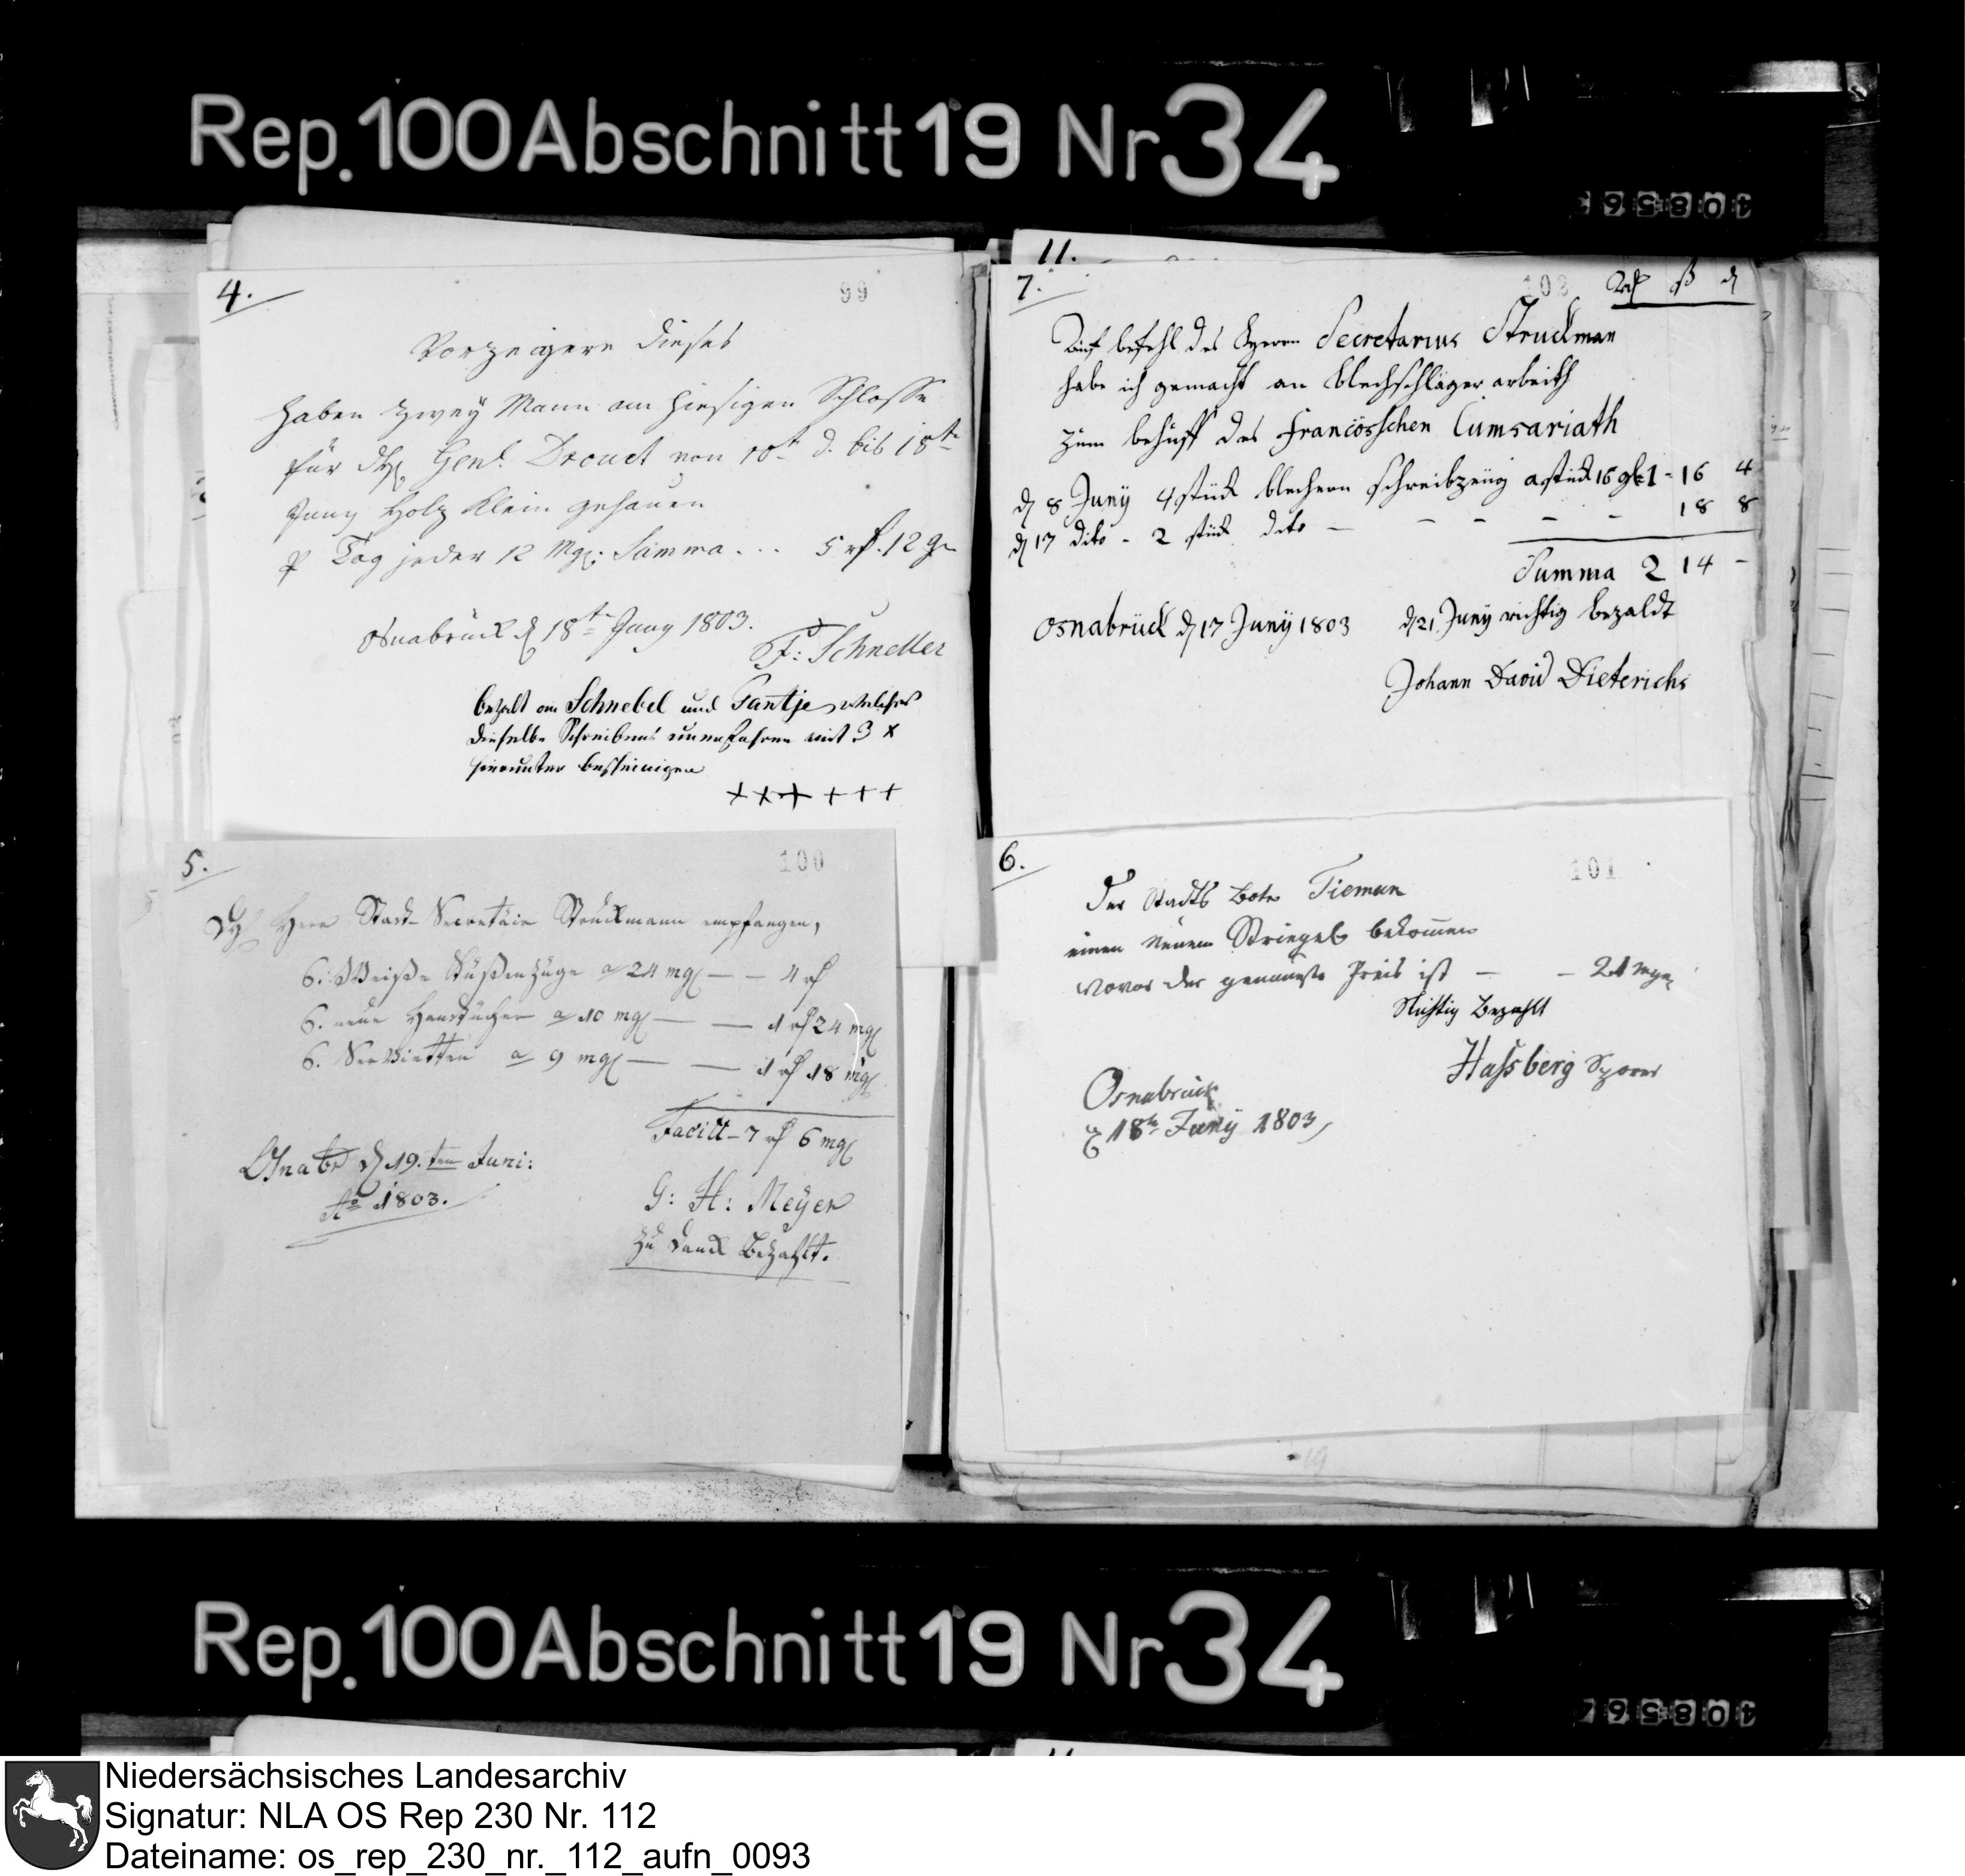 Rep. 100 Abschnitt 19 Nr 34
11.
4.
99
Vorzeigere dieses
haben zwey Mann am hiesigen Schlosse
für Genl. Drouet von 10t d. bis 18t
Juny Holz klein gehauen
p Tag jeder 12 Mg: Summa ... 5 rh. 12 g
Osnabrück d 18t Juny 1803.
F: Schneller
bezalt an Schnebel und Tantje welches
dieselbe Schreibens unerfahren mit 3 x
hierunter bescheinigen
x x x + + +
5.
100
Herr Stadt-Secretair Struckmann empfangen,
6. Weiße Küßenzüge a 24 mg — — 4 rh
6. neue Handtücher a 10 mg — — 1 rh 24 mg
6. Servietten a 9 mg — — 1 rh 18 mg
Facitt — 7 rh 6 mg
Osnabr d 19.ten Juni:
Ao 1803.
G: H: Meyer
zu Danck Bezahlt.
7.
103
Auf befehl des Herrn Secretarius Struckman
habe ich gemacht an blechschläger arbeith
zum behuff des francösschen Cumsariath
d 8 Juny 4 stück blechern schreibzeüg a stück 1 - 16 4
d 17 dito - 2 stück dito — — — — — 18 8
Summa 2 14 -
Osnabrück d 17 Juny 1803
d 21 Juny richtig bezaldt
Johann David Dieterichs
6.
101
Der Stadts Bote Tieman
einen neuen Striegel bekommen
wovor der genaueste Preis ist — — 21 mgr
Richtig Bezahlt
Hassberg Sporer
Osnabrück
d 18t Juny 1803
Rep. 100 Abschnitt 19 Nr 34
Niedersächsisches Landesarchiv
Signatur: NLA OS Rep 230 Nr. 112
Dateiname: os_rep_230_nr._112_aufn_0093